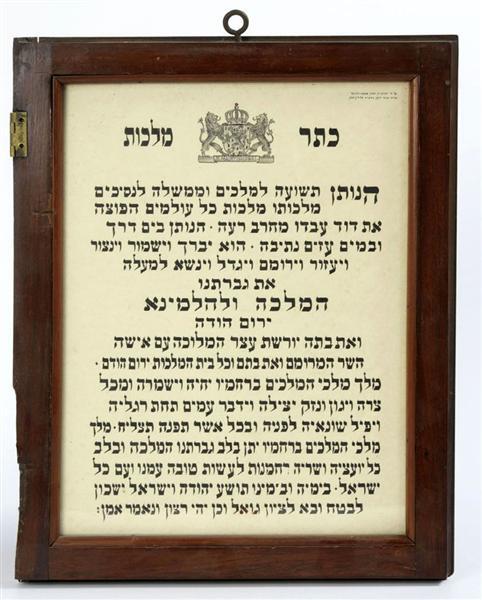 כתר מלכות
הנותן תשועה למלכים וממשלה לנסיכים
מלכותו מלכות כל עולמים הפוצה
את דוד עבדו מחרב רעה · הנותן בים דרך
ובמים עזים נתיבה · הוא יברך וישמור וינצור
ויעזור וירומם ויגדל וינשא למעלה
את גברתנו
המלכה ולהלמינא
ירום הודה
ואת בתה יורשת עצר המלוכה עם אישה
השר המרומם ואת בתם וכל בית המלכות ירום הודם ·
מלך מלכי המלכים ברחמיו יחיה וישמרה ומכל
צרה ויגון ונזק יצילה וידבר עמים תחת רגליה
ויפיל שונאיה לפניה ובכל אשר תפנה תצליח · מלך
מלכי המלכים ברחמיו יתן בלב גברתנו המלכה ובלב
כל יועציה ושריה רחמנות לעשות טובה עמנו ועם כל
ישראל · בימיה ובימינו תושע יהודה וישראל ישכון
לבטח ובא לציון גואל וכן יהי רצון ונאמר אמן: